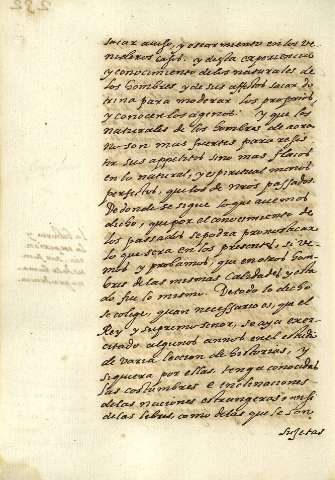 sacar auiso, y escarmiento en los ve
nideros casos. y desta experiencia
y conocimiento de los naturales de
los hombres y de sus afectos sacar do
trina para moderar los propios,
y conocer los agenos. Y que los
naturales de los hombres de aora
no son mas fuertes para resis
tir sus appetitos sino mas flacos
en lo natural, y espiritual menos
perfectos, que los de nros passados.
De donde se sigue lo que auemos
dicho, que por el conocimiento de
los passados se podra pronosticar
lo que sera en los presentes, si ve
mos y prouamos, que en otros hom
bres de las mismas calidades y esta
do fue lo mismo. De todo lo dicho
se colige, quan necessario es, que el
Rey y supremo señor, se aya exer
citado algunos annos en el estudio
de varia leccion de historias, y
siquiera por ellas, tenga conocidas
las costumbres e inclinaciones
de las naciones estrangeras
de las como de las que le son
sujetas